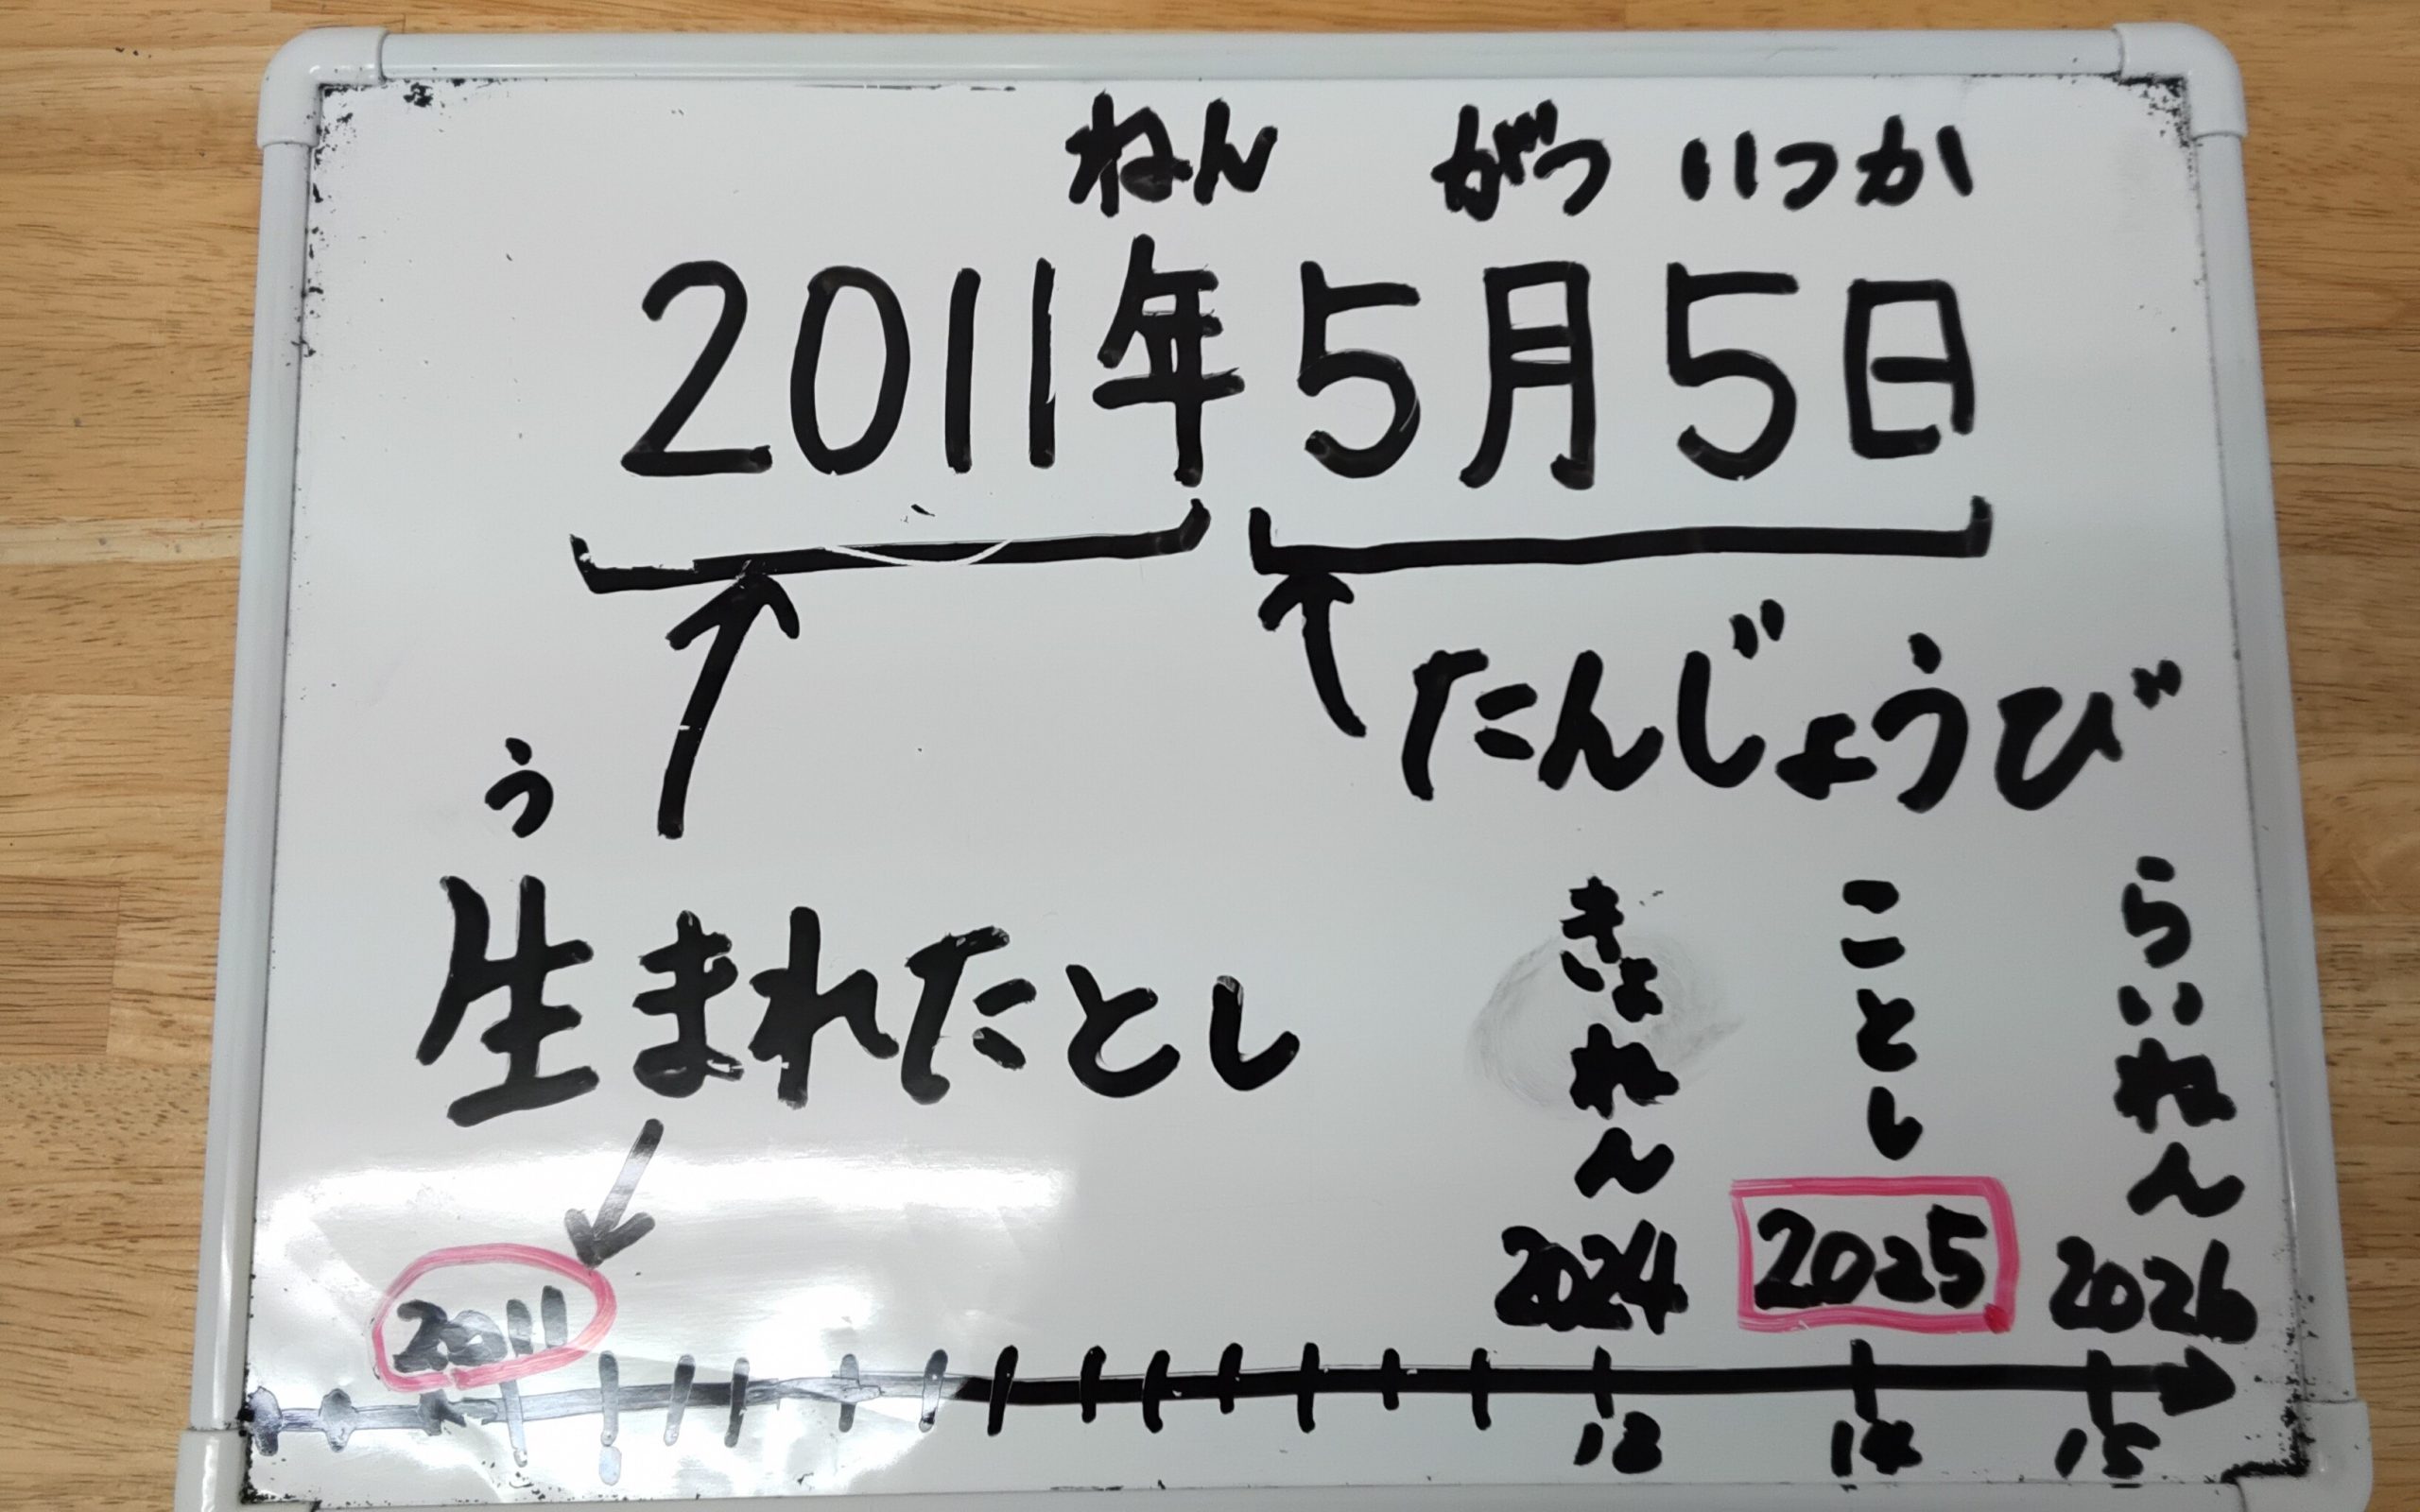 ねん がつ いつか
2011年5月5日
たんじょうび
う
生まれたとし
きょねん ことし らいねん
2011 2024 2025 2026
13 14 15